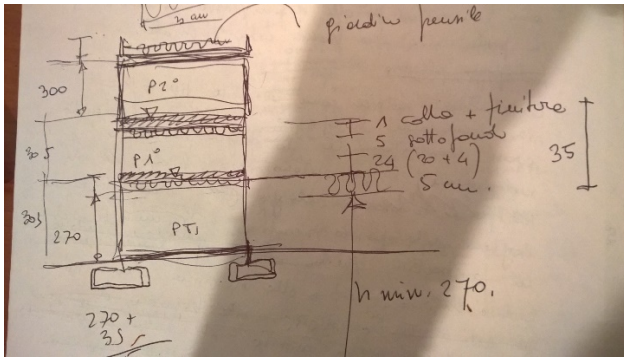 giardino pensile
300
P2°
305
P1°
305
270
PT
1 colla + finitura
5 sottofondo
24 (20+4)
5 cm.
35
h min. 270.
270 +
35